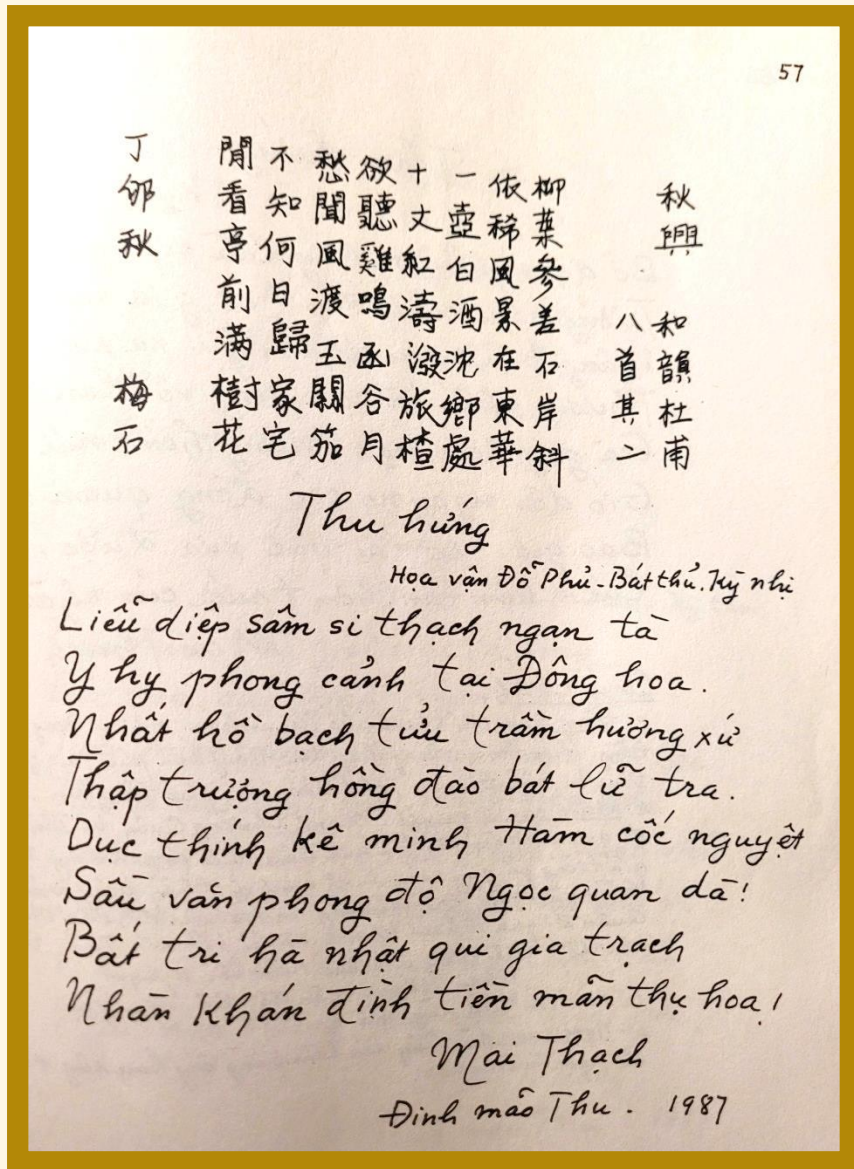 57
秋興 和韻杜甫
八首其二
柳葉參差石岸斜
依稀風景在東華
一壺白酒沈鄉處
十丈紅濤潑旅楂
欲聽雞鳴函谷月
愁聞風渡玉關笳
不知何日歸家宅
閒看亭前滿樹花
丁卯秋 梅石
Thu hứng
Họa vận Đỗ Phủ - Bát thủ. Kỳ nhị
Liễu diệp sâm si thạch ngạn tà
Y hy phong cảnh tại Đông hoa.
Nhất hồ bạch tửu trầm hương xứ
Thập trượng hồng đào bát lữ tra.
Dục thính kê minh Hàm cốc nguyệt
Sầu văn phong độ Ngọc quan dà!
Bất tri hà nhật qui gia trạch
Nhàn khán đình tiền mãn thụ hoa!
Mai Thạch
Đinh mão Thu. 1987